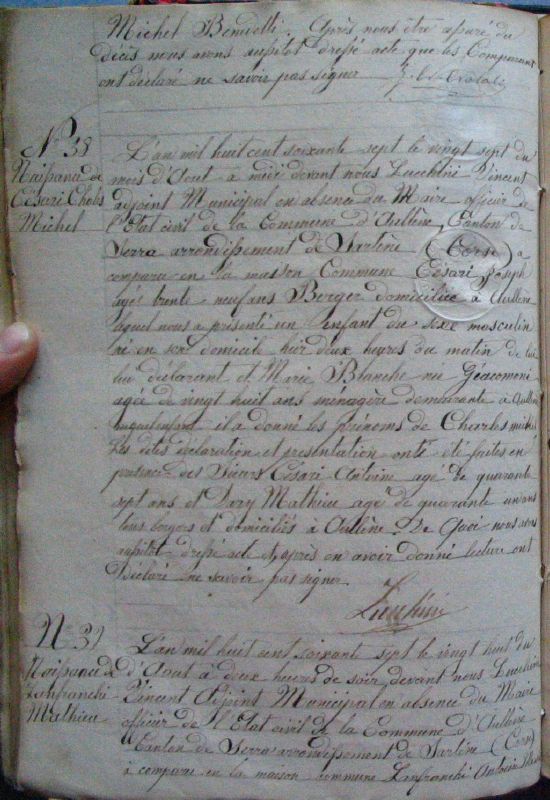 Michel Benedetti. Après nous être assuré du
Décès nous avons aussitot dressé acte que les Comparant
ont déclaré ne savoir pas signer
N° 38
Naissance de
Césari Charles
Michel
L'an mil huit cent soixante sept le vingt sept du
mois d'Aout a midi devant nous Lucchini Vincent
adjoint Municipal en absence du Maire officier de
l'Etat civil de la Commune d'Aullène Canton de
Serra arrondissement de Sartène (Corse) a
comparu en la maison Commune Césari Joseph
agé trente neuf ans Berger domicilié à Aullène
lequel nous a présenté un enfant du sexe masculin
né en son domicile hier deux heures du matin de lui
lui déclarant et Marie Blanche née Giacomoni
agée de vingt huit ans ménagère demeurante à Aullène
auquel enfant il a donné les prénoms de Charles michel
Les dites déclaration et presentation ont été faites en
presence des Sieurs Césari Antoine agé de quarante
sept ans et Mathieu agé de quarante un ans
tous bergers et domiciliés à Aullène. De Quoi nous avons
aussitot dressé acte et, après en avoir donné lecture ont
Déclaré ne savoir pas signer.
Lucchini
N° 39
Naissance de
Lanfranchi
Mathieu
L'an mil huit cent soixante sept le vingt huit du
d'Aout à deux heures de soir, devant nous Lucchini
Vincent Adjoint Municipal en absence du Maire
officier de l'Etat civil de la Commune d'Aullène
Canton de Serra arrondissement de Sartène (Corse)
à comparu en la maison commune Lanfranchi Antoine